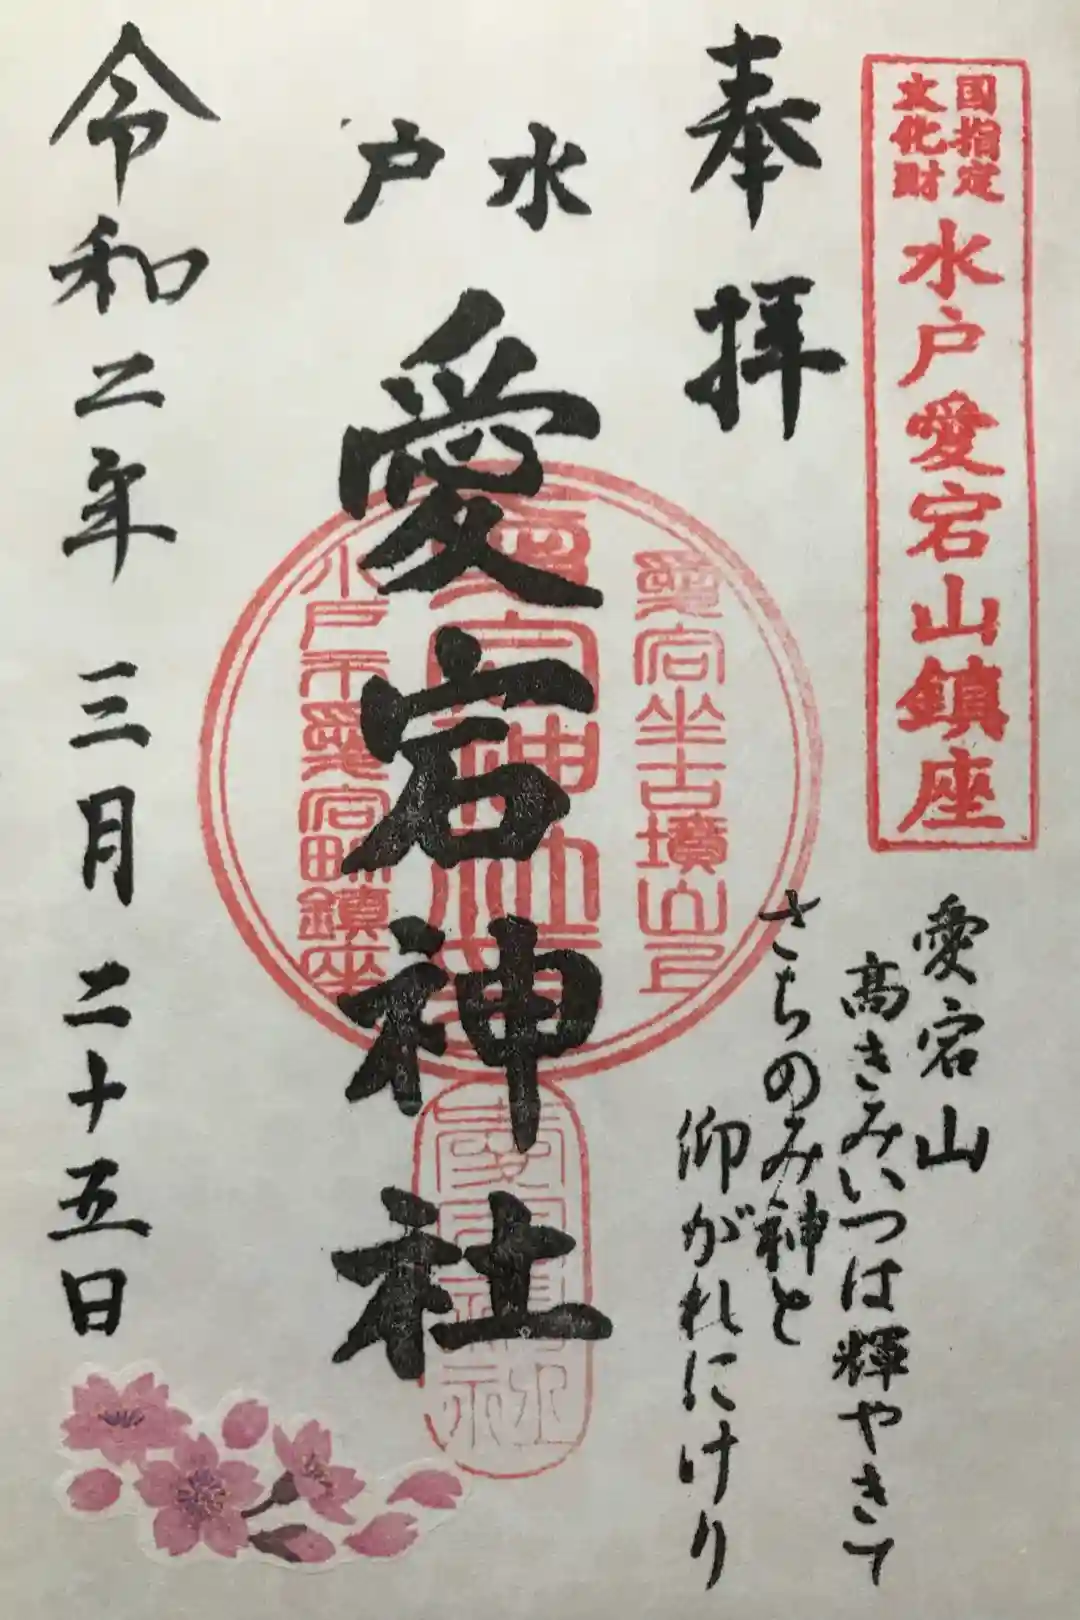 国指定
文化財
水戸愛宕山鎮座
奉拝
愛宕山
高きみいつは輝やきて
さちのみ神と
仰がれにけり
水戸
愛宕神社
愛宕坐古墳山上
愛宕神社
水戸市愛宕町鎮座
令和二年 三月二十五日